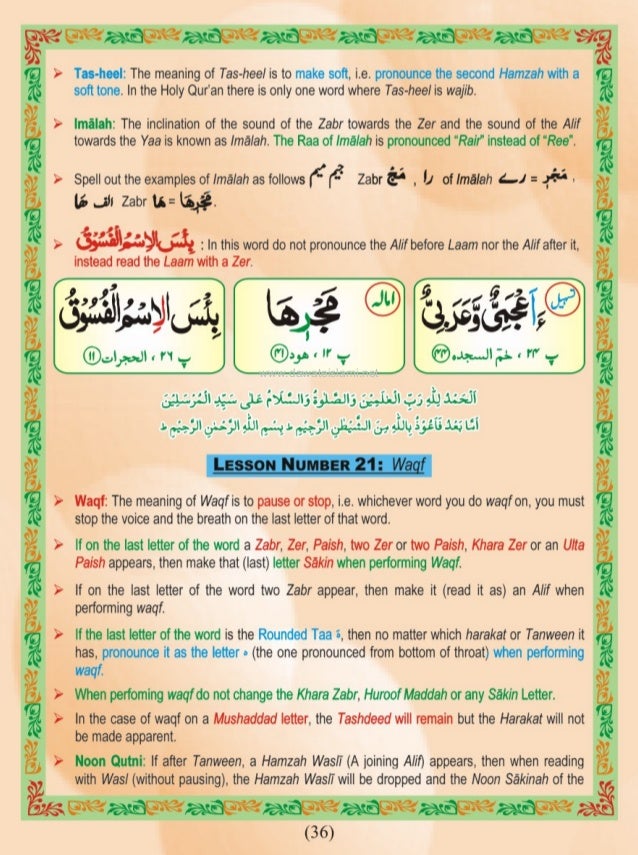 ➢ Tas-heel: The meaning of Tas-heel is to make soft, i.e. pronounce the second Hamzah with a
soft tone. In the Holy Qur'an there is only one word where Tas-heel is wajib.
➢ Imālah: The inclination of the sound of the Zabr towards the Zer and the sound of the Alif
towards the Yaa is known as Imālah. The Raa of Imālah is pronounced “Rair” instead of “Ree”.
➢ Spell out the examples of Imālah as follows میم جیم Zabr مَجْ , را of Imālah رے = مَجْرٖ ,
ھا الف Zabr ھَا = مَجْرٖىهَا.
➢ بِئْسَ الِاسْمُ الْفُسُوْقُ : In this word do not pronounce the Alif before Laam nor the Alif after it,
instead read the Laam with a Zer.
تسہیل ءَاَعْجَمِیٌّ وَّعَرَبِیٌّ
پ ۲۴ ، حٰمٓ السجدہ ۴۴
امالہ مَجْرٖىهَا
پ ۱۲ ، ھود ۴۱
بِئْسَ الِاسْمُ الْفُسُوْقُ
پ ۲۶ ، الحجرات ۱۱
www.dawateislami.net
اَلْحَمْدُ لِلّٰهِ رَبِّ الْعٰلَمِیْنَ وَالصَّلٰوةُ وَالسَّلَامُ عَلٰی سَیِّدِ الْمُرْسَلِیْنَ
اَمَّا بَعْدُ فَاَعُوْذُ بِاللّٰهِ مِنَ الشَّیْطٰنِ الرَّجِیْمِ ط بِسْمِ اللّٰهِ الرَّحْمٰنِ الرَّحِیْمِ ط
LESSON NUMBER 21: Waqf
➢ Waqf: The meaning of Waqf is to pause or stop, i.e. whichever word you do waqf on, you must
stop the voice and the breath on the last letter of that word.
➢ If on the last letter of the word a Zabr, Zer, Paish, two Zer or two Paish, Khara Zer or an Ulta
Paish appears, then make that (last) letter Sākin when performing Waqf.
➢ If on the last letter of the word two Zabr appear, then make it (read it as) an Alif when
performing waqf.
➢ If the last letter of the word is the Rounded Taa ة, then no matter which harakat or Tanween it
has, pronounce it as the letter ه (the one pronounced from bottom of throat) when performing
waqf.
➢ When perfoming waqf do not change the Khara Zabr, Huroof Maddah or any Sākin Letter.
➢ In the case of waqf on a Mushaddad letter, the Tashdeed will remain but the Harakat will not
be made apparent.
➢ Noon Qutni: If after Tanween, a Hamzah Waslī (A joining Alif) appears, then when reading
with Wasl (without pausing), the Hamzah Waslī will be dropped and the Noon Sākinah of the
(36)